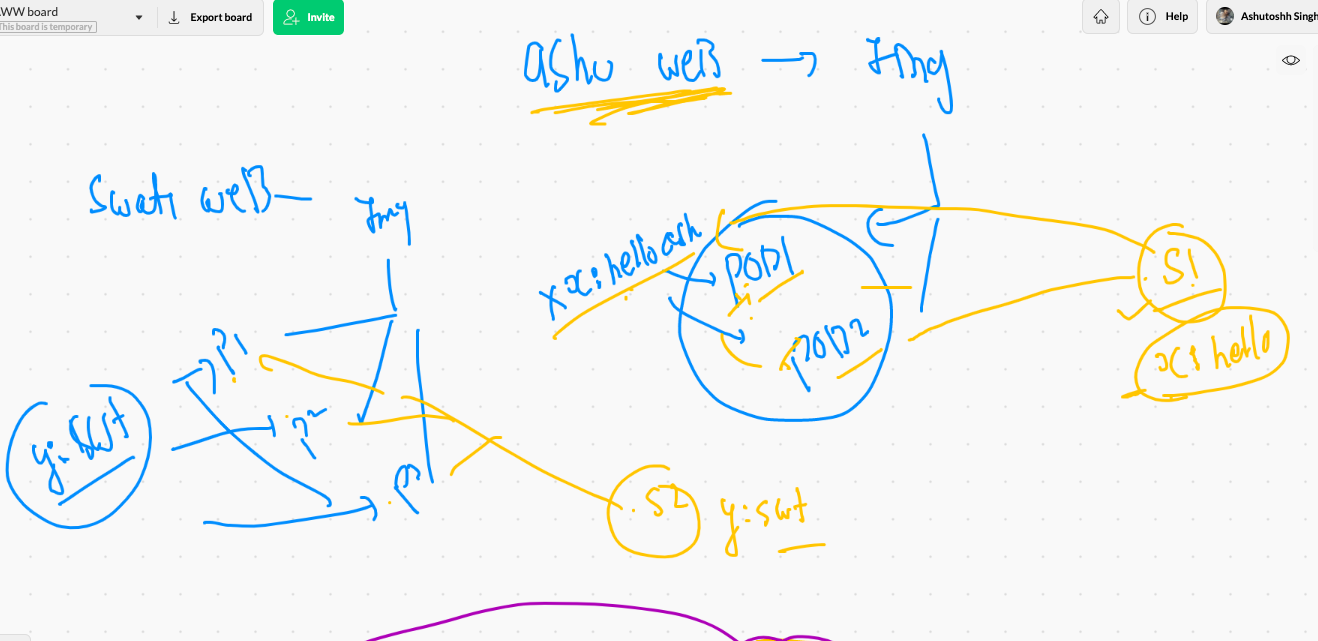 AWW board
This board is temporary
Export board
Invite
Help
Ashutoshh Singh
ashu weB → Img
Swati weB
Img
x: helloash
POD1
POD2
S1
x: hello
P1
P2
P
y: swt
S2 y: swt